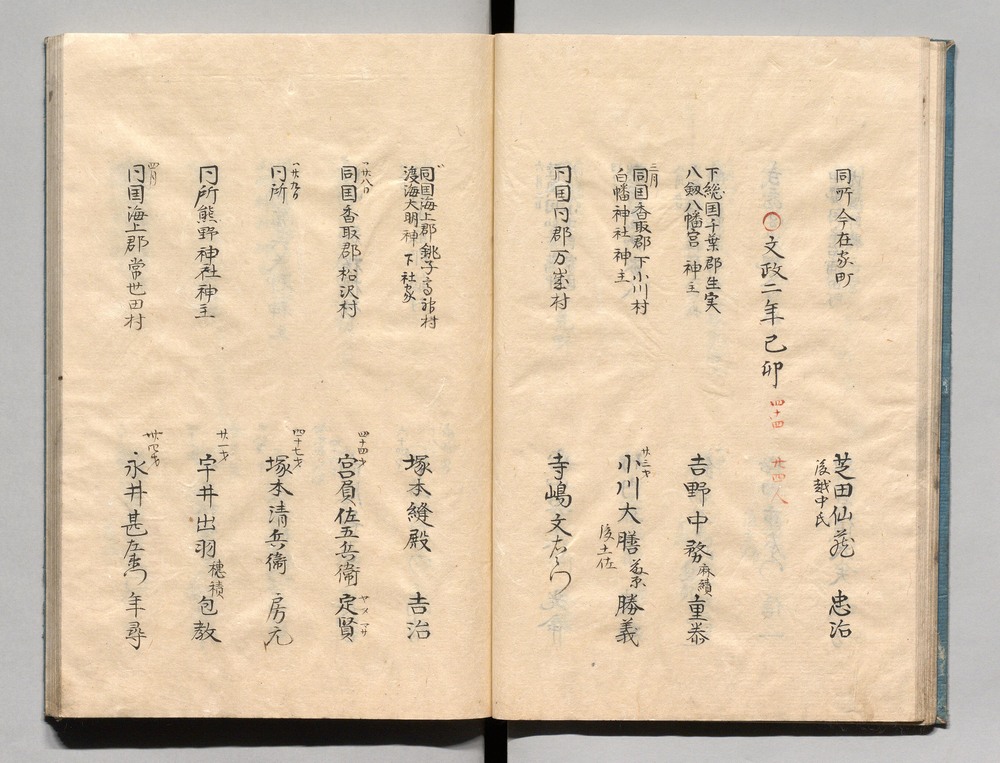 同所今在家町
芝田仙蔵 忠治
後越中氏
〇文政二年己卯 四十四 廿四人
下総国千葉郡生実
八劔八幡宮 神主
吉野中務 麻績 重泰
三月
同国香取郡下小川村
白幡神社 神主
廿三才
小川大膳 勝義
後土佐
同国同郡万歳村
寺嶋文右衛門
同国海上郡銚子高神村
渡海大明神 下社家
塚本縫殿 吉治
廿八日
同国香取郡松沢村
四十四才
宮負佐五兵衛 定賢
ヤスマサ
廿九日
同所
四十七才
塚本清兵衛 房元
同所熊野神社神主
廿一才
宇井出羽 穂積 包教
四月
同国海上郡常世田村
廿四才
永井甚左衛門 年尋